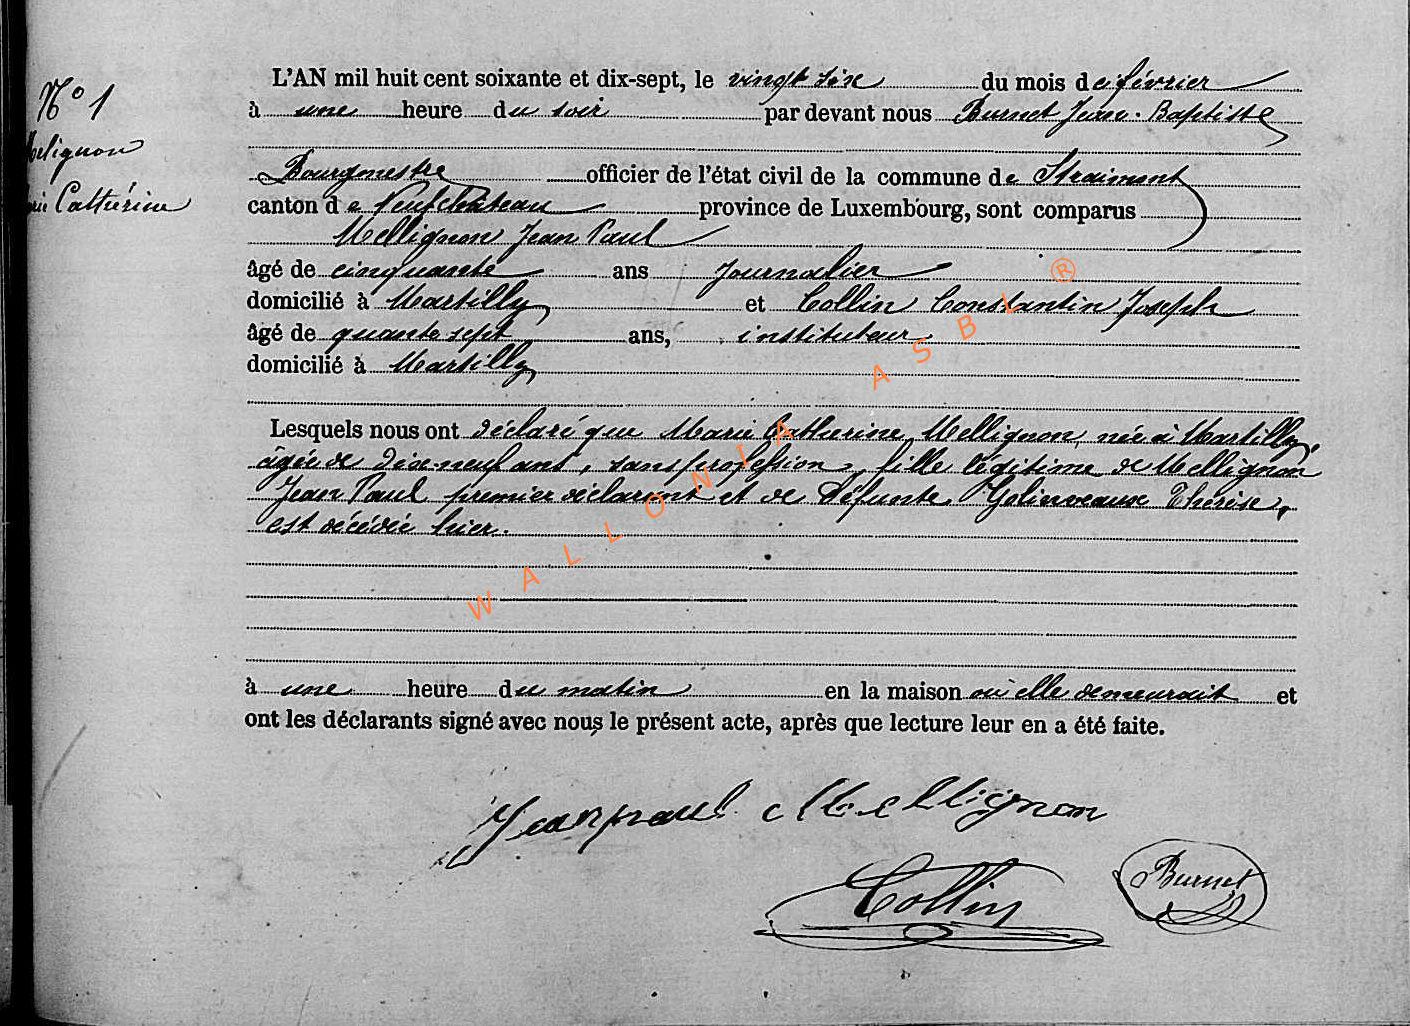 N° 1
Mellignon
Marie Cathérine
L'AN mil huit cent soixante et dix-sept, le vingt six du mois de février
à une heure du soir par devant nous Burnet Jean-Baptiste
Bourgmestre officier de l'état civil de la commune de Straimont
canton de Neufchâteau province de Luxembourg, sont comparus
Mellignon Jean Paul
âgé de cinquante ans Journalier
domicilié à Martilly et Collin Constantin Joseph
âgé de quante sept ans, instituteur
domicilié à Martilly
Lesquels nous ont déclaré que Marie Catherine Mellignon, née à Martilly,
âgée de dix-neuf ans, sans profession, fille légitime de Mellignon
Jean Paul premier déclarant et de défunte Golinveaux Thérèse,
est décédée hier.
à une heure du matin en la maison où elle demeurait et
ont les déclarants signé avec nous le présent acte, après que lecture leur en a été faite.
Jeanpaul Mellignon
Collin
Burnet
WALLONIA ASBL ®